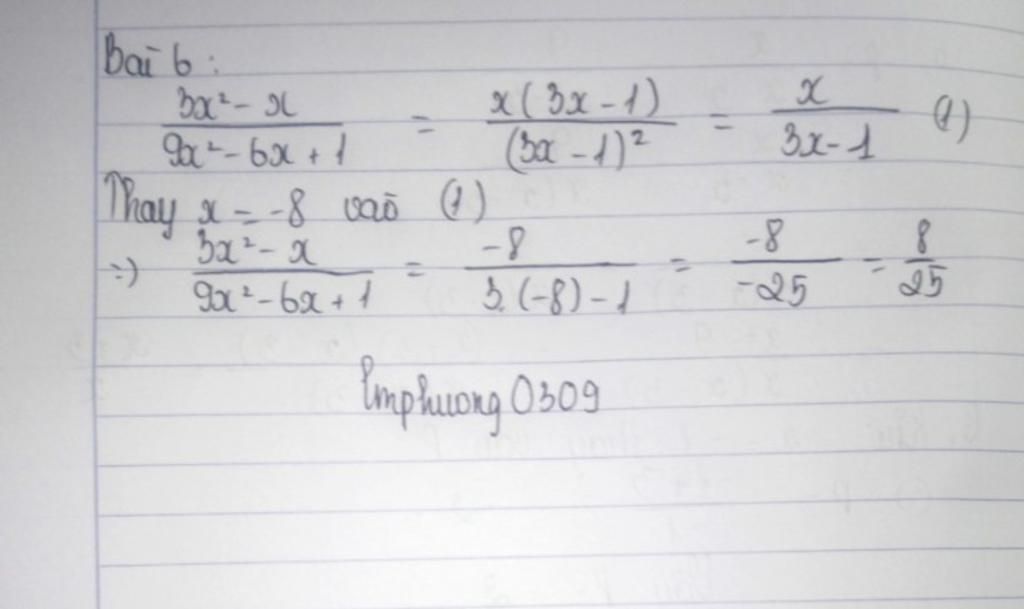 Bài 6:
3x² - x / 9x² - 6x + 1 = x(3x - 1) / (3x - 1)² = x / 3x - 1 (1)
Thay x = -8 vào (1)
=> 3x² - x / 9x² - 6x + 1 = -8 / 3.(-8) - 1 = -8 / -25 = 8 / 25
lmphuong0309